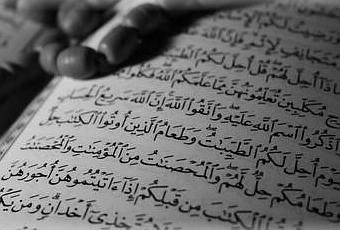 وَرَضِيتُ لَكُمُ الْإِسْلَا
مُتَجَانِفٍ لِإِثْمٍ فَإِنَّ اللَّهَ
مَاذَا أُحِلَّ لَهُمْ قُلْ أُحِلَّ لَكُمُ الطَّيِّ
مُكَلِّبِينَ تُعَلِّمُونَهُنَّ مِمَّا عَلَّمَكُمُ اللَّهُ فَكُلُوا
وَاذْكُرُوا اسْمَ اللَّهِ عَلَيْهِ وَاتَّقُوا اللَّهَ إِنَّ اللَّهَ سَرِيعُ الْحِسَابِ
يَوْمَ أُحِلَّ لَكُمُ الطَّيِّبَاتُ وَطَعَامُ الَّذِينَ أُوتُوا الْكِتَابَ حِلٌّ
وَطَعَامُكُمْ حِلٌّ لَهُمْ وَالْمُحْصَنَاتُ مِنَ الْمُؤْمِنَاتِ وَالْمُحْصَنَاتُ
الْكِتَابَ مِنْ قَبْلِكُمْ إِذَا آتَيْتُمُوهُنَّ أُجُورَهُنَّ
مُتَّخِذِي أَخْدَانٍ وَمَنْ يَكْ